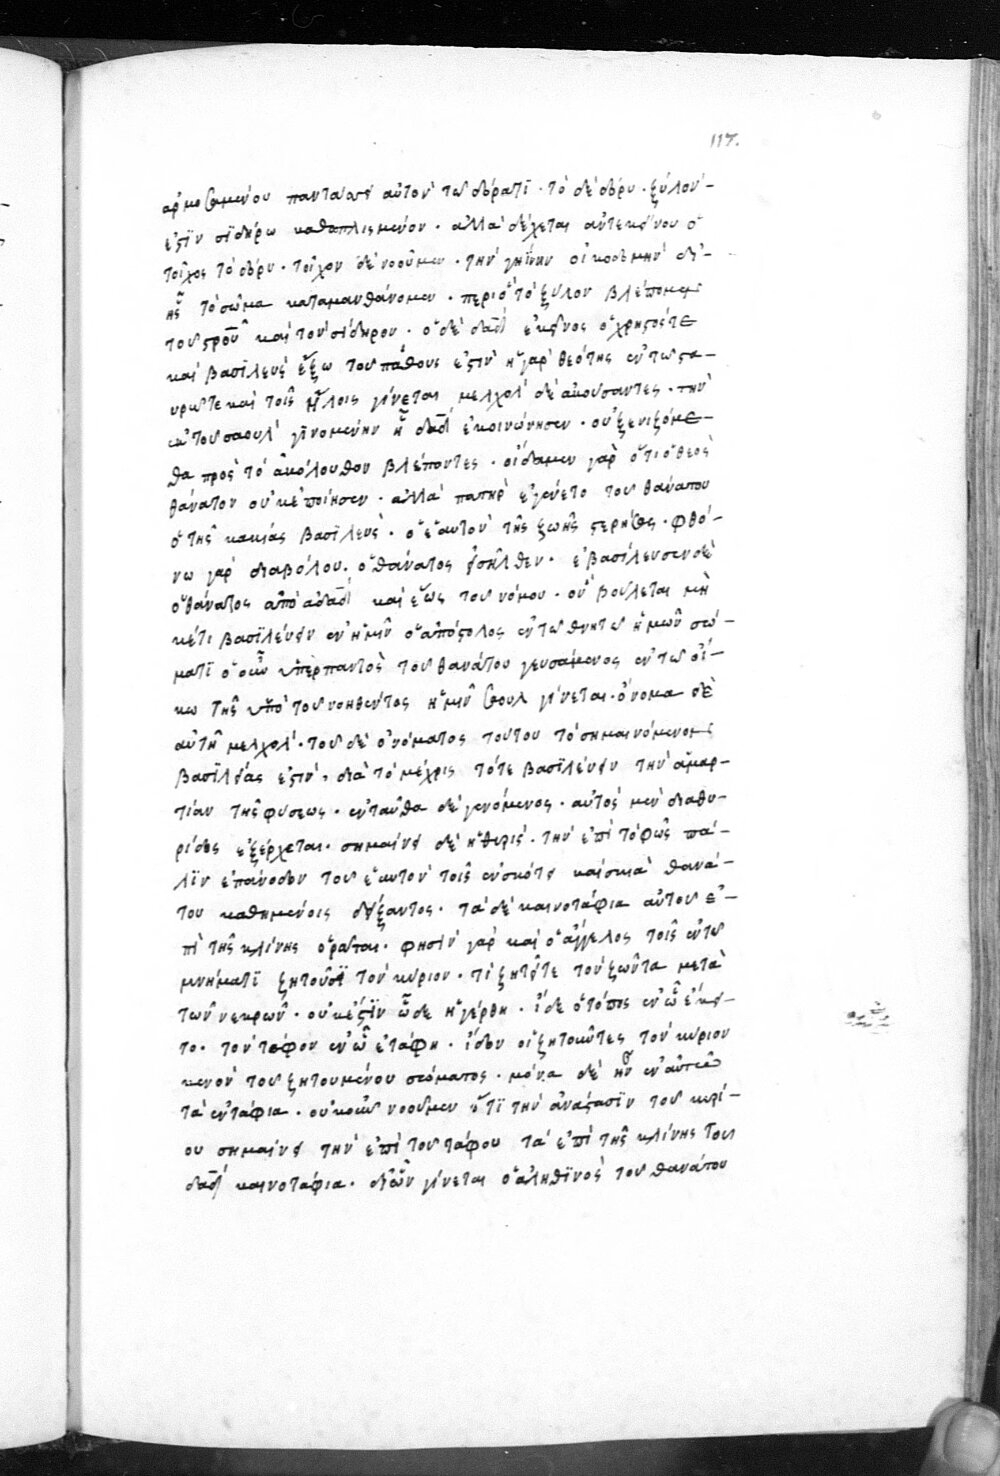 117.
ἁρμοσαμένου παντα αὐτὸν τῶ δόρατϊ · τὸ δὲ δόρυ · ξύλον
ἐστϊν σϊδήρω καθοπλισμένον · ἀλλὰ δέχεται αὐτ ἐκείνου ὁ
τοῖχος τὸ δόρυ · τοῖχον δὲ νοοῦμεν · τὴν γηΐνην οἰκοδομὴν δι᾽
ἧς τὸ σῶμα καταμανθάνομεν · περι ὃ τὸ ξύλον βλέπομεν
τοῦ στροῦ καὶ τὸν σίδηρον · ὁ δὲ δαδ ἐκεῖνος ὁ χρηστός τε
καὶ βασϊλεὺς ἔξω τοῦ πάθους ἐστὶν ἡ γὰρ θεότης ἐν τῶ στα-
υρῶ τε καὶ τοῖς ἥλοις γίνεται μελχολ δὲ ἀκούσαντες · τὴν
ἐκ τοῦ σαοὺλ γϊνομένην ἧ δαδ ἐκοινώνησεν · οὐ ξενιζόμε-
θα πρὸς τὸ ἀκόλουθον βλέποντες · οἴδαμεν γὰρ ὅτι ὁ θεὸς
θάνατον οὐκ ἐποίησεν · ἀλλὰ πατὴρ ἐγένετο τοῦ θανάτου
ὁ τῆς κακίας βασϊλεὺς · ὁ ἑαυτὸν τῆς ζωῆς στερήσας · φθό-
νω γὰρ διαβόλου · ὁ θάνατος εἰσῆλθεν · ἐβασίλευσεν δὲ
ὁ θάνατος ἀπὸ ἀδὰμ καὶ ἕως τοῦ νόμου · οὐ βούλεται μη
κέτι βασϊλεύειν ἐν ἡμῖν ὁ ἀπόστολος ἐν τῶ θνητῶ ἡμῶν σώ-
ματϊ ὁ οὖν ὑπὲρ παντὸς τοῦ θανάτου γευσάμενος ἐν τῶ οἴ-
κω τῆς ὑπὸ τοῦ νοηθέντος ἡμῖν σαουλ γίνεται · ὄνομα δὲ
αὐτῆ μελχολ · τοῦ δὲ ὀνόματος τούτου τὸ σημαινόμενον
βασϊλείας ἐστὶν · διὰ τὸ μέχρις τότε βασϊλεύειν τὴν ἁμαρ-
τίαν τῆς φύσεως · ἐνταῦθα δὲ γενόμενος · αὐτὸς μὲν διὰ θυ-
ρίδος ἐξέρχεται · σημαίνει δὲ ἡ θυρὶς · τὴν ἐπὶ τὸ φῶς πά-
λϊν ἐπάνοδον τοῦ ἑαυτὸν τοῖς ἐν σκότει καὶ σκιᾶ θανά-
του καθημένοις δείξαντος · τὰ δὲ καινοτάφια αὐτοῦ ἐ-
πὶ τῆς κλίνης ὁρᾶται · φησὶν γὰρ καὶ ὁ ἄγγελος τοῖς ἐν τῶ
μνήματϊ ζητοῦσϊ τὸν κύριον · τί ζητεῖτε τὸν ζῶντα μετὰ
τῶν νεκρῶν · οὐκ ἔστϊν ὧδε ἠγέρθη · ἴδε ὁ τόπος ἐν ὧ ἔκει-
το · τὸν τάφον ἐν ὧ ἐτάφη · ἴδον οἱ ζητοῦντες τὸν κύριον
κενὸν τοῦ ζητουμένου σώματος · μόνα δὲ ἦν ἐν αὐτῶ
τὰ ἐντάφια · οὐκοῦν νοοῦμεν ὅτϊ τὴν ἀνάστασϊν τοῦ κυρί-
ου σημαίνει τὴν ἐπὶ τοῦ τάφου τὰ ἐπὶ τῆς κλίνης τοῦ
δαδ καινοτάφια · δι᾽ ὧν γίνεται ὁ ἀληθϊνὸς τοῦ θανάτου